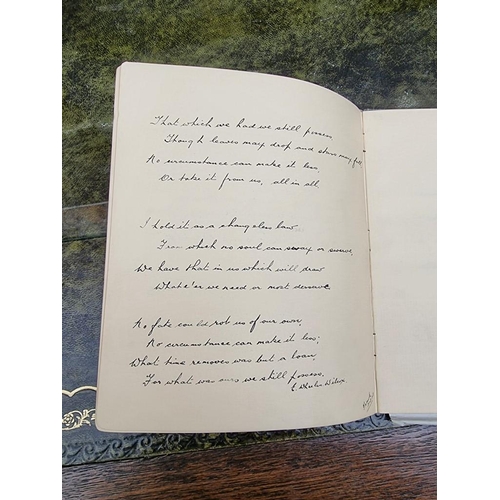 That which we had we still possess,
Though leaves may drop and stars may fall
No circumstance can make it less,
Or take it from us, all in all.
I hold it as a changeless law,
From which no soul can sway or swerve,
We have that in us which will draw
Whate'er we need or most deserve.
No fate could rob us of our own,
No circumstance can make it less;
What time removes was but a loan,
For what was ours we still possess.
E Wheeler Wilcox